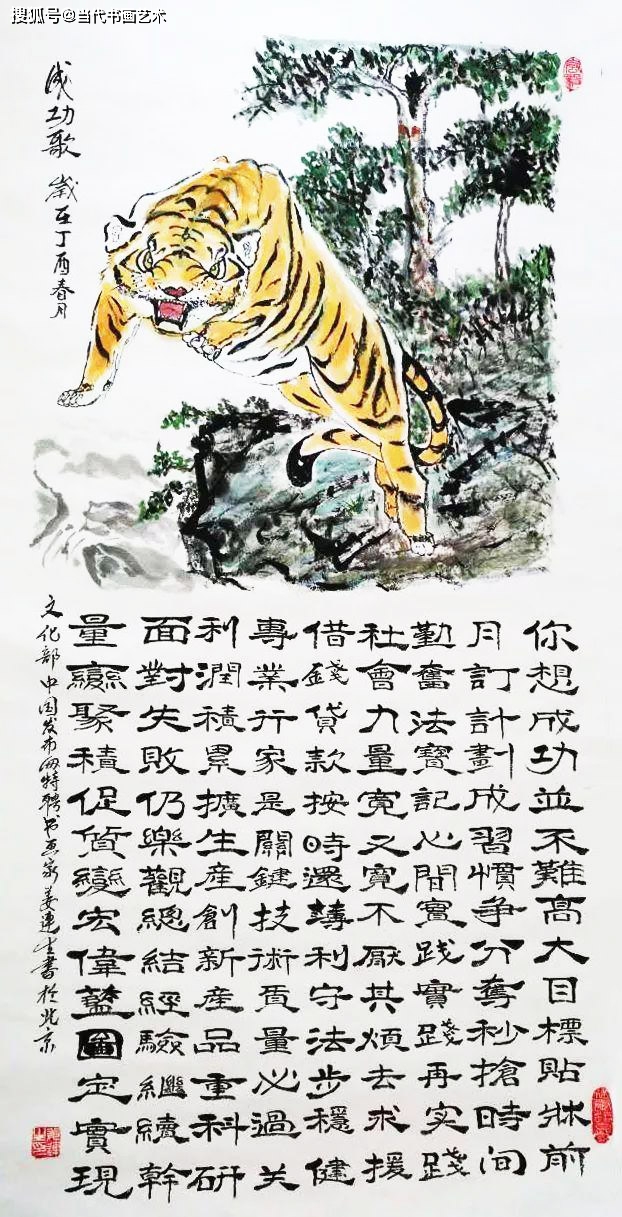 搜狐号@当代书画艺术
成功歌 歲在丁酉春月
你想成功並不難高大目標貼牀前
月訂計劃成習慣爭分奪秒搶時间
勤奮法寶記心間實践實踐再实踐
社會力量寬又寬不厭其煩去求援
借錢貸款按時還薄利守法步穩健
專業行家是關鍵技術质量必過关
利潤積累擴生産創新産品重科研
面對失敗仍樂觀總結經驗繼續幹
量變聚積促質變宏偉藍圖定實現
文化部中国发布网特聘书画家姜连生書於北京